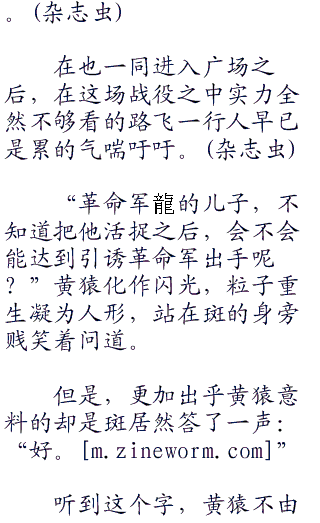 。(杂志虫)
在也一同进入广场之
后，在这场战役之中实力全
然不够看的路飞一行人早已
是累的气喘吁吁。(杂志虫)
“革命军龍的儿子，不
知道把他活捉之后，会不会
能达到引诱革命军出手呢
？”黄猿化作闪光，粒子重
生凝为人形，站在斑的身旁
贱笑着问道。
但是，更加出乎黄猿意
料的却是斑居然答了一声：
“好。[m.zineworm.com]”
听到这个字，黄猿不由